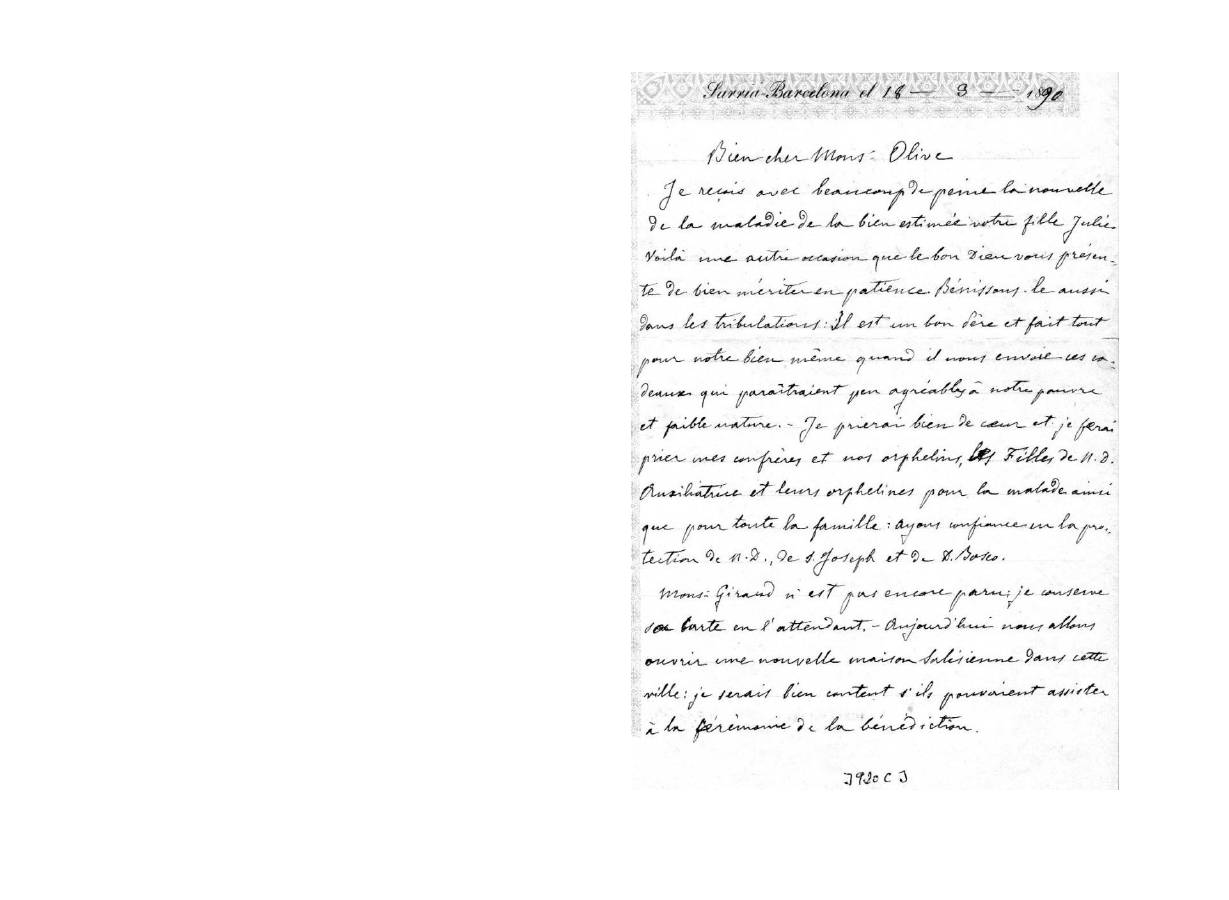 Sarriá-Barcelona el 18 — 3 — 1890
Bien cher Mons.r Olive
Je reçois avec beaucoup de peine la nouvelle
de la maladie de la bien estimée votre fille Julie.
Voilà une autre occasion que le bon Dieu vous présen-
te de bien mériter en patience. Bénissons-le aussi
dans les tribulations: Il est un bon Père et fait tout
pour notre bien même quand il nous envoie ces ca-
deaux qui paraîtraient peu agréables à notre pauvre
et faible nature. - Je prierai bien de cœur et je ferai
prier mes confrères et nos orphelins, les Filles de N.D.
Auxiliatrice et leurs orphelines pour la malade ainsi
que pour toute la famille: ayons confiance en la pro-
tection de N.D., de S. Joseph et de D. Bosco.
Mons.r Giraud n'est pas encore paru; je conserve
sa carte en l'attendant. - Aujourd'hui nous allons
ouvrir une nouvelle maison Salésienne dans cette
ville: je serais bien content s'ils pouvaient assister
à la cérémonie de la bénédiction.
3920 C 3